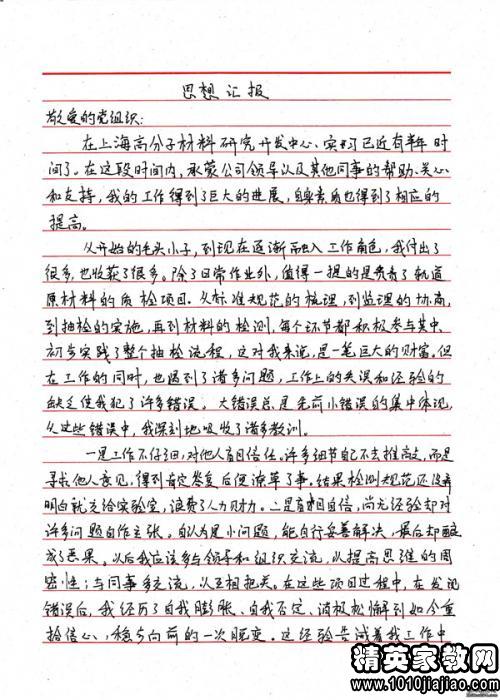 思想汇报
敬爱的党组织:
在上海高分子材料研究开发中心实习已近有半年时
间了。在这段时间内,承蒙公司领导以及其他同事的帮助、关心
和支持,我的工作得到了巨大的进展,自身素质也得到了相应的
提高。
从开始的毛头小子,到现在逐渐融入工作角色,我付出了
很多,也收获了很多。除了日常作业外,值得一提的是负责了轨道
原材料的质检项目。从标准规范的梳理,到监理的协商,
到抽检的实施,再到材料的检测,每个环节都积极参与其中、
初步实践了整个抽检流程,这对我来说,是一笔巨大的财富。但
在工作的同时,也遇到了诸多问题,工作上的失误和经验的
缺乏使我犯了许多错误。大错误总是先前小错误的集中体现,
从这些错误中,我深刻地吸收了诸多教训。
一是工作不仔细,对他人盲目信任。许多细节自己不去推敲,而是
寻求他人意见,得到肯定答复后便潦草了事。结果检测规范还没弄
明白就交给实验室,浪费了人力财力。二是盲目自信,尚无经验却对
许多问题自作主张。自认为是小问题,能自行妥善解决,最后却酿
成了恶果。以后我应该多与领导和组织交流,以提高思维的周
密性;与同事多交流,以互相把关。在这些项目过程中,在发现
错误后,我经历了自我膨胀、自我否定、消极松懈到如今重
拾信心、稳步向前的一次蜕变。这经验告诫着我工作中
精英家教网
www.1010jiajiao.com